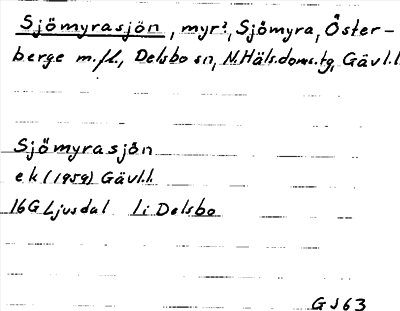 Sjömyrasjön, myr?, Sjömyra, Öster-
berge m.fl., Delsbo sn, N.Häls.doms.tg, Gävl.l.
Sjömyrasjön
ek (1959) Gävl.l.
16G Ljusdal 1i Delsbo
GJ63